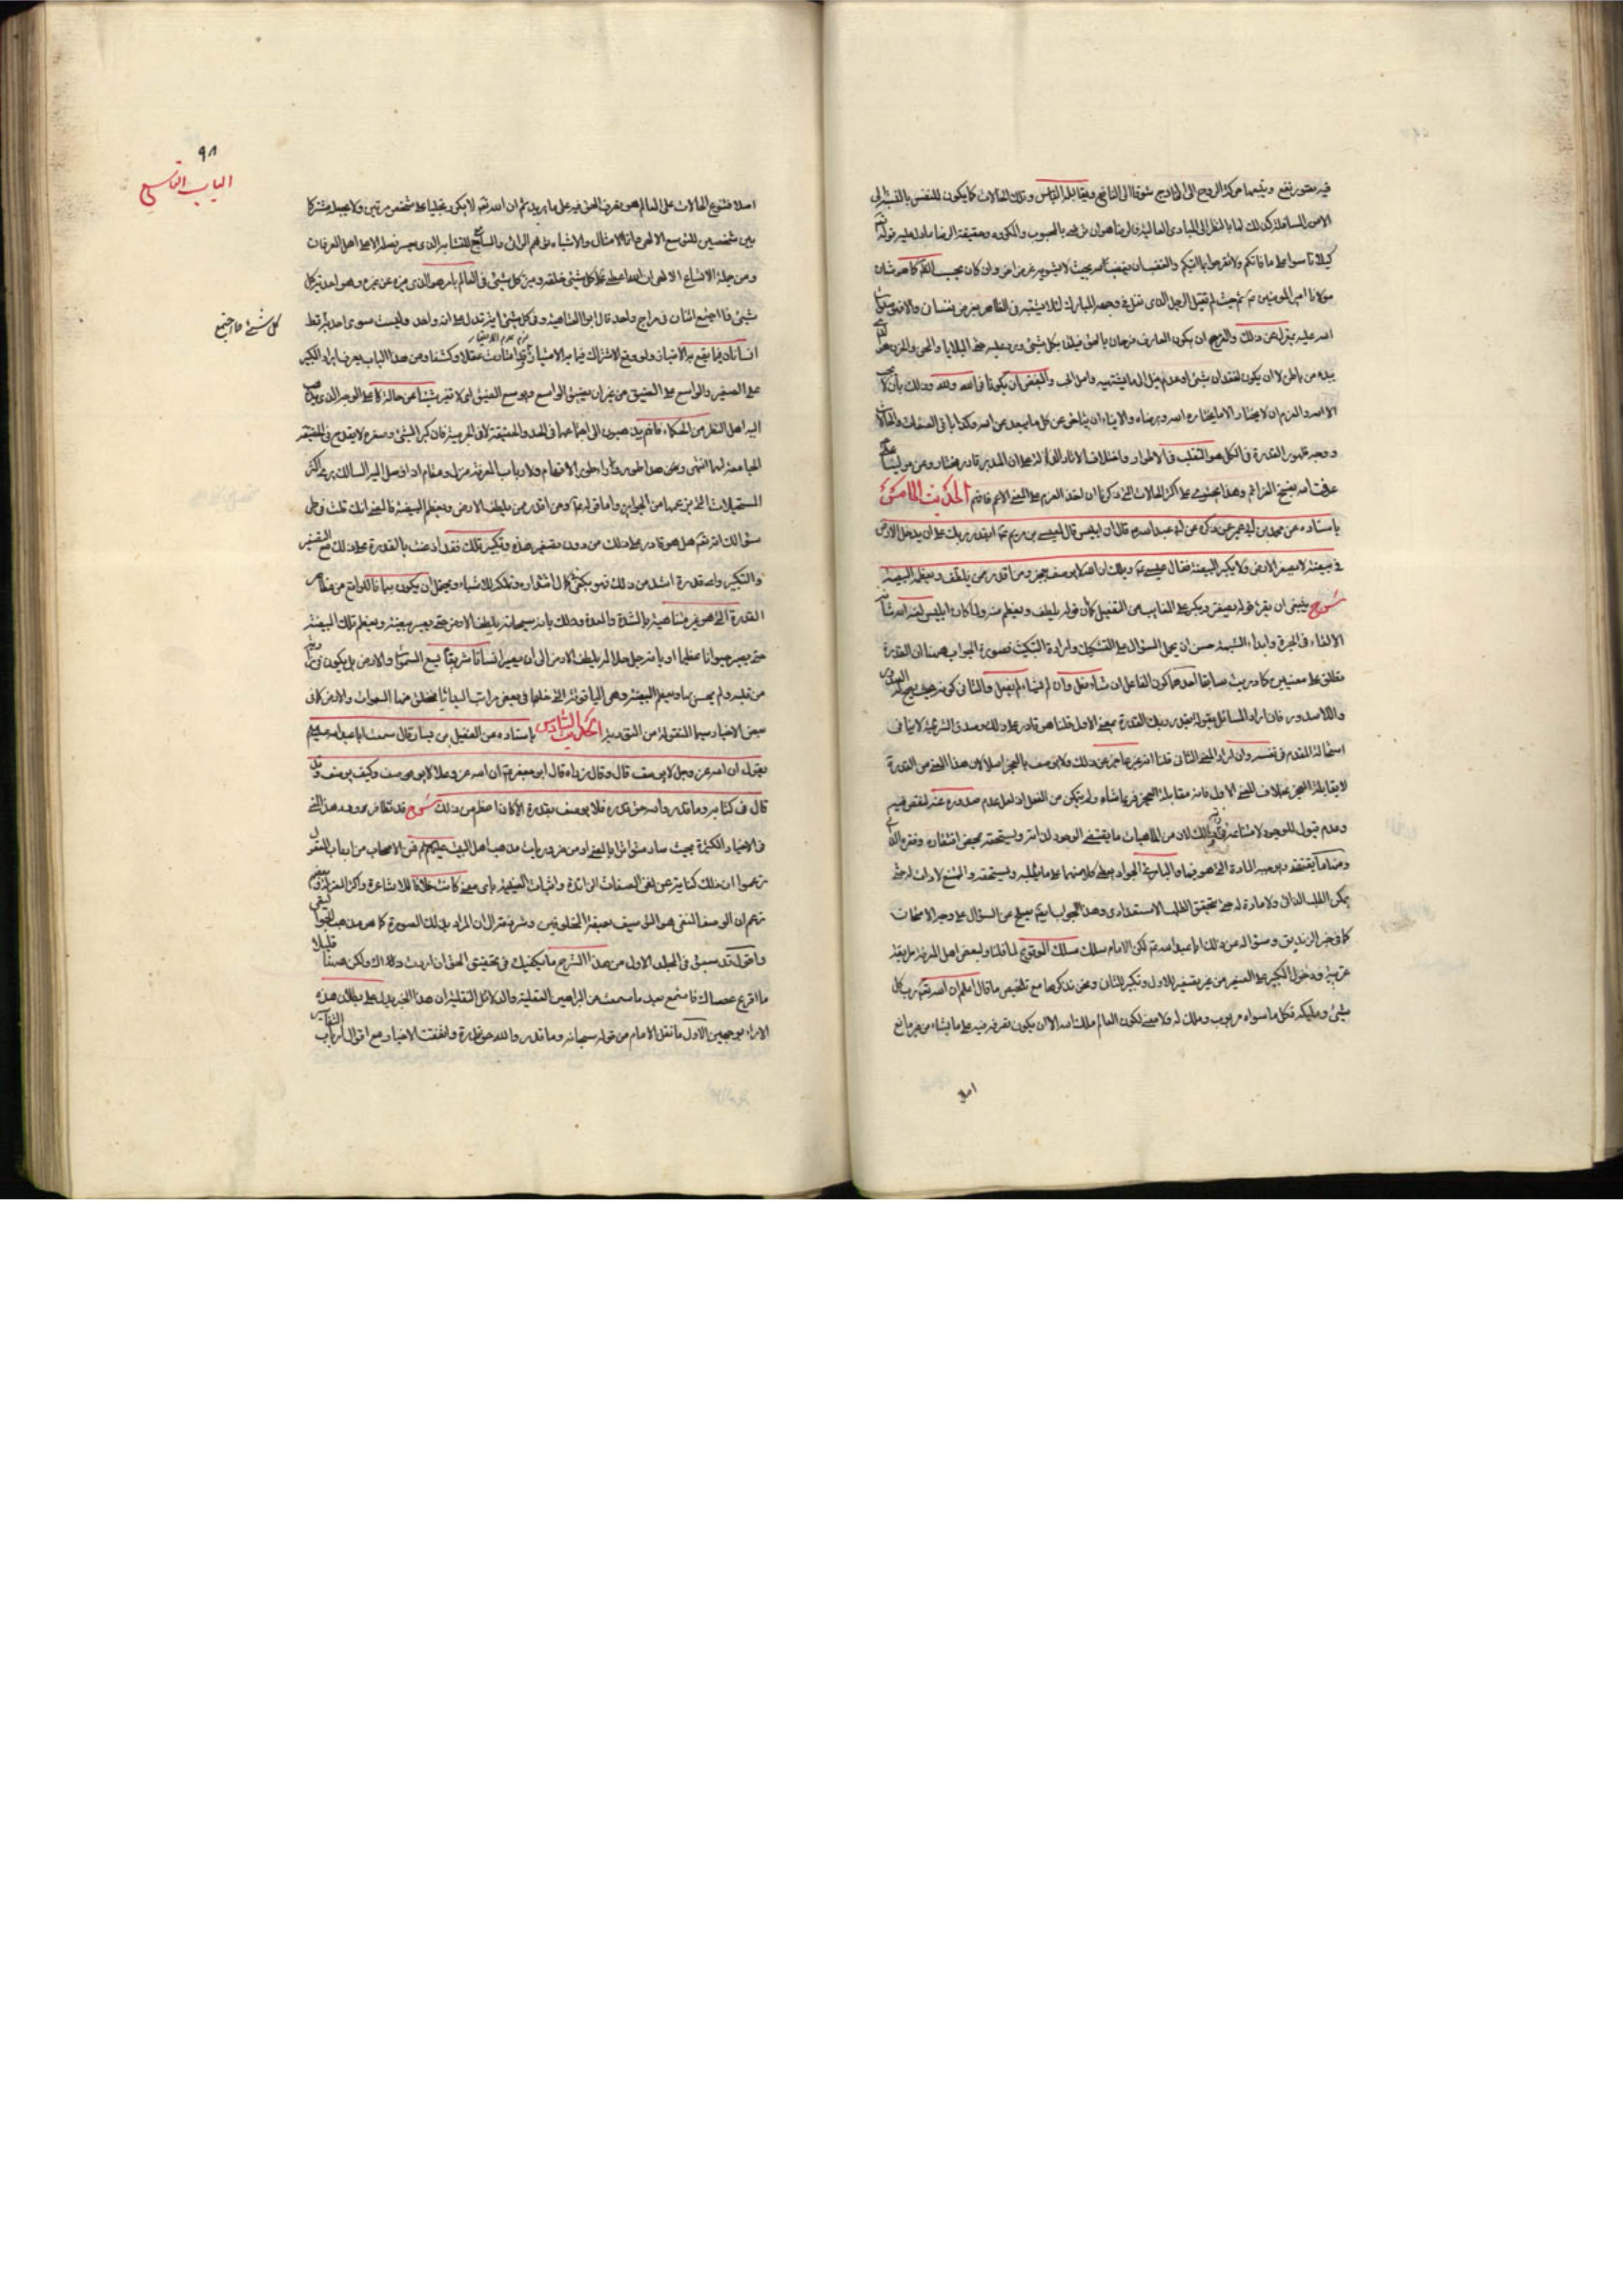 فيه بتصور نفع ويتبعها حركة الروح الى الخارج شوقا الى النافع ويقابله اليأس وتلك الحالات كما يكون للنفس بالنسبة الى
الامور السافلة كذلك لها بالنظر الى المبادى العالية فالرضا هو ان يرضى بالمحبوب والمكروه وحقيقة الرضا ما دل عليه قوله تعالى
كيلا تاسوا على ما فاتكم ولا تفرحوا بما اتيكم والغضب ان يغضب لله بحيث لا يشوبه غرض اخر وان كان بحسب
مولانا امير المؤمنين حيث لم يقتل الرجل الذى تفل فى وجهه المبارك لئلا يشتبه فى الظاهر بغرض نفسانى والا فهو
الله عليه بمعزل عن ذلك والفرح ان يكون العارف فرحان بالحق فيلتذ بكل شىء يرد عليه حتى البلايا والمحن والحزن هو
من باطن لا ان يكون لفقدان شىء او عدم نيل الى ما يشتهيه واما الحب والبغض ان يكونا فى الله ولله وذلك بان لا يحب
الا الله والعزم ان لا يختار الا ما يختاره الله ويرضاه والاباء ان يتابى عن كل ما يبعد عن الله وهكذا باقى الصفات والحالات
ووجه ظهور القدرة فى الكل هو التقلب فى الاطوار واختلاف الاثار على ان المدبر قادر مختار وعن مولينا على
عرفت الله بفسخ العزائم وهذا يحتوى على اكثر الحالات التى ذكرنا ان اخذ العزم على المعنى الاعم فافهم الحديث الخامس
باسناده عن محمد بن ابى عمير عمن ذكره عن ابى عبد الله قال ان ابليس قال لعيسى بن مريم ايقدر ربك على ان يدخل الارض
فى بيضة لا يصغر الارض ولا يكبر البيضة فقال عيسى ويلك ان الله لا يوصف بعجز ومن اقدر ممن يلطف الارض ويعظم البيضة
شرح ينبغى ان يقرء قوله يصغر ويكبر على الغايب من التفعيل كما ان قوله يلطف ويعظم منه ولما كان ابليس لعنه الله شانه
الالقاء فى الحيرة وابداء الشبهة حسن ان يحمل السؤال على التشكيك وارادة التبكيت فصورة الجواب ههنا ان القدرة
يطلق على معنيين كما دريت سابقا احدهما كون الفاعل ان شاء فعل وان لم يشاء لم يفعل والثانى كونه بحيث يصح له الصدور
واللاصدور فان اراد السائل بقوله يقدر ربك القدرة بمعنى الاول قلنا هو قادر على ذلك وصدق الشرطية لا ينافى
استحالة المقدم فى نفسه وان اراد المعنى الثانى قلنا انه غير عاجز عن ذلك ولا يوصف بالعجز اصلا لان هذا المعنى من القدرة
لا يقابله العجز بخلاف المعنى الاول فانه مقابلة العجز فربما شاء ولم يتمكن من الفعل اذ لعل عدم صدوره عنه لنقص فيه
وعدم قبول للوجود لامتناعه وذلك لان من الماهيات ما يقتضى الوجود لذاته ويستحقه بمحض افتقاره وفقره
ومنها ما يفتقد ويوجبه المادة التى هو فيها والبارى الجواد يعطى كلا منهما على ما يطلبه ويستحقه والممتنع لا ذات له حتى
يمكن الطلب الذاتى ولا مادة له حتى يتحقق الطلب الاستعدادى وهذا الجواب ايضا يصلح عن السؤال على وجه الامتحان
كما فى خبر الزنديق وسؤاله عن ذلك ابا عبد الله لكن الامام سلك مسلك لما قلنا ولبعض اهل المعرفة طريقة
غريبة فى دخول الكبير على الصغير من غير تصغير للاول وتكبير للثانى ونحن نذكرها مع تلخيص ما قال اعلم ان الله تعالى رب كل
شىء ومليكه فكل ما سواه مربوب وملك له ولا معنى لكون العالم ملك الله الا ان يكون تصرفه فيه على ما يشاء من غير مانع
اصلا
٩٨
الباب التاسع
اصلا فتنوع الحالات على العالم هو تصرف الحق فيه على ما يريد ثم ان الله تعالى لا يكرر تجليا على شخص مرتين ولا يجعله مشتركا
بين شخصين للتوسع الالهى وانما الامثال والاشباه توهم الرائى والسامع للتشابه الذى يعسر فصله الا على اهل العرفان
ومن جملة الاتساع الالهى ان الله اعطى كل شىء خلقه وميز كل شىء فى العالم بامر هو الذى ميزه عن غيره وهو احدية كل
شىء فما اجتمع اثنان فى مزاج واحد قال ابو العتاهية وفى كل شىء له اية تدل على انه واحد وليست سوى احدية
كل شىء فما اجتمع
اثنان فيما يقع به الامتياز ولو وقع الاشتراك فيما به الامتياز وقد امتازت عقلا وكشفا ومن هذا الباب يعرف ايراد الكبير
على الصغير والواسع على الضيق من غير ان يضيق الواسع ويوسع الضيق اى لا تغير شيئا عن حالة كما على الوجه الذى يذهب
اليه اهل النظر من الحكماء فانهم يذهبون الى اجتماعهما فى الحد والحقيقة لا فى الجرمية فان كبر الشىء وصغره لا يقدح فى الحقيقة
الجامعة لهما انتهى وعن هذا طور وراء اطوار الافهام ولارباب المعرفة منزل ومقام اذا وصل اليه السالك يرى اكثر
المستحيلات التى يزعمها من الجواب واما قوله ومن اقدر ممن يلطف الارض ويعظم البيضة فالمعنى انك قلت فى طى
سؤالك انه تعالى هل هو قادر على ذلك من دون تصغير هذه وتكبير تلك فقد اذعنت بالقدرة على ذلك مع التصغير
والتكبير واى قدرة اشد من ذلك فهو يكفى كمال اقتداره وملكه للاشياء ويحتمل ان يكون بيانا للواقع من مقام
القدرة التى هو غير متناهية بالشدة والعدة وذلك بانه سبحانه يلطف الارض حتى يصير بيضة ويعظم تلك البيضة
حتى يصير حيوانا عظيما او بانه جل جلاله يلطف الارض الى ان يصير انسانا شريفا يسع السموات والارض بل يكون فى زاوية
من قلبه ولم يحس بها ويعظم البيضة وهى الياقوتة التى خلقها فى بعض مراتب البدايا فخلق منها السموات والارض كما فى
بعض الاخبار سيما المنقولة من التورية الحديث السادس باسناده عن الفضيل بن يسار قال سمعت ابا عبد الله عليه السلم
يقول ان الله عز وجل لا يوصف قال وقال زراره قال ابو جعفر ان الله عز وعلا لا يوصف وكيف يوصف وقد
قال فى كتابه وما قدروا الله حق قدره فلا يوصف بقدرة الا كان اعظم من ذلك شرح قد تظافر ورود هذا المعنى
فى الاخبار الكثيرة بحيث صار متواترا بالمعنى او من ضروريات مذهب اهل البيت عليهم السلم فمن الاصحاب من ارباب النظر
زعموا ان ذلك كناية عن نفى الصفات الزائدة واثبات العينية باى معنى كانت خلافا للاشاعرة واكثر المعتزلة وبعضهم
زعم ان الوصف المنفى هو التوصيف بصفة المخلوقين وشرذمة الى ان المراد بذلك الصورة كما هو مذهب
واقول قد سبق فى المجلد الاول من هذا الشرح ما يكفيك فى تحقيق الحق ان اردت ذلك ولكن ههنا قليلا
ما اقرع عصاك فاستمع بعد ما سمعت من البراهين العقلية والدلائل النقلية ان هذا الخبر يدل على بطلان هذه
الاراء بوجهين الاول ما نقل الامام من قوله سبحانه وما قدروا الله حق قدره واتفقت الاخبار مع اقوال ارباب التفاسير